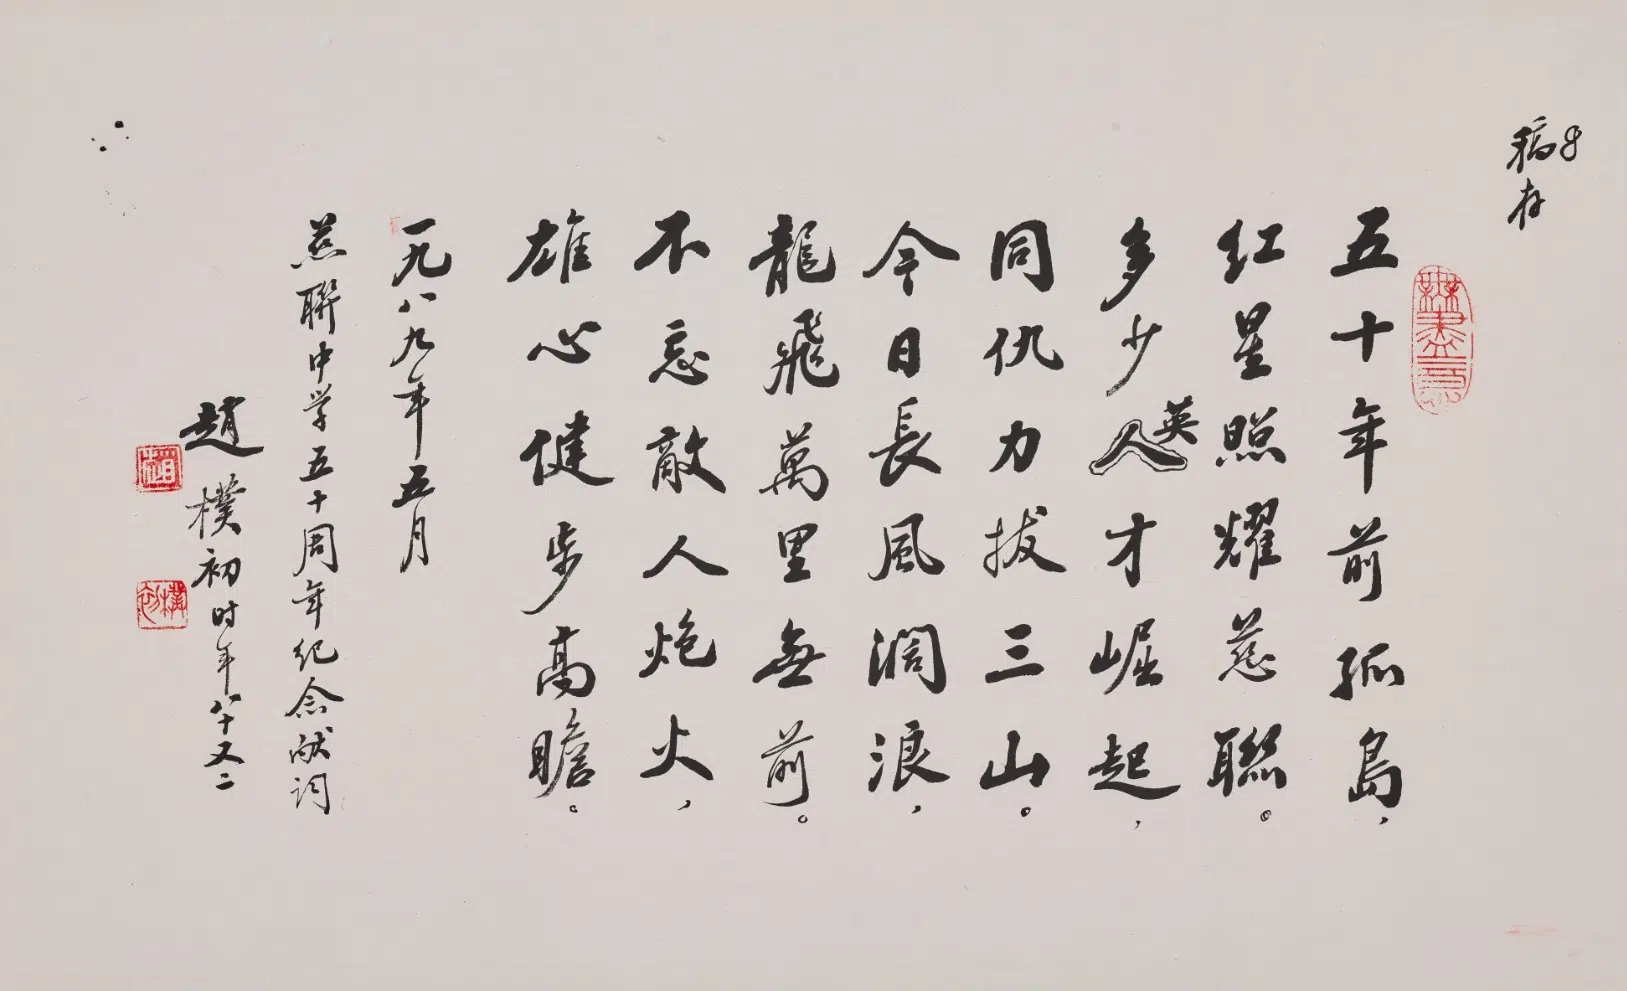 存稿
無盡意
五十年前孤島，
红星照耀慈聯。
多少人英才崛起，
同仇力拔三山。
今日長風濶浪，
龍飛萬里無前。
不忘敵人炮火，
雄心健步高瞻。
一九八九年五月
慈聯中学五十周年纪念献词
趙樸初时年八十又二
趙
樸初